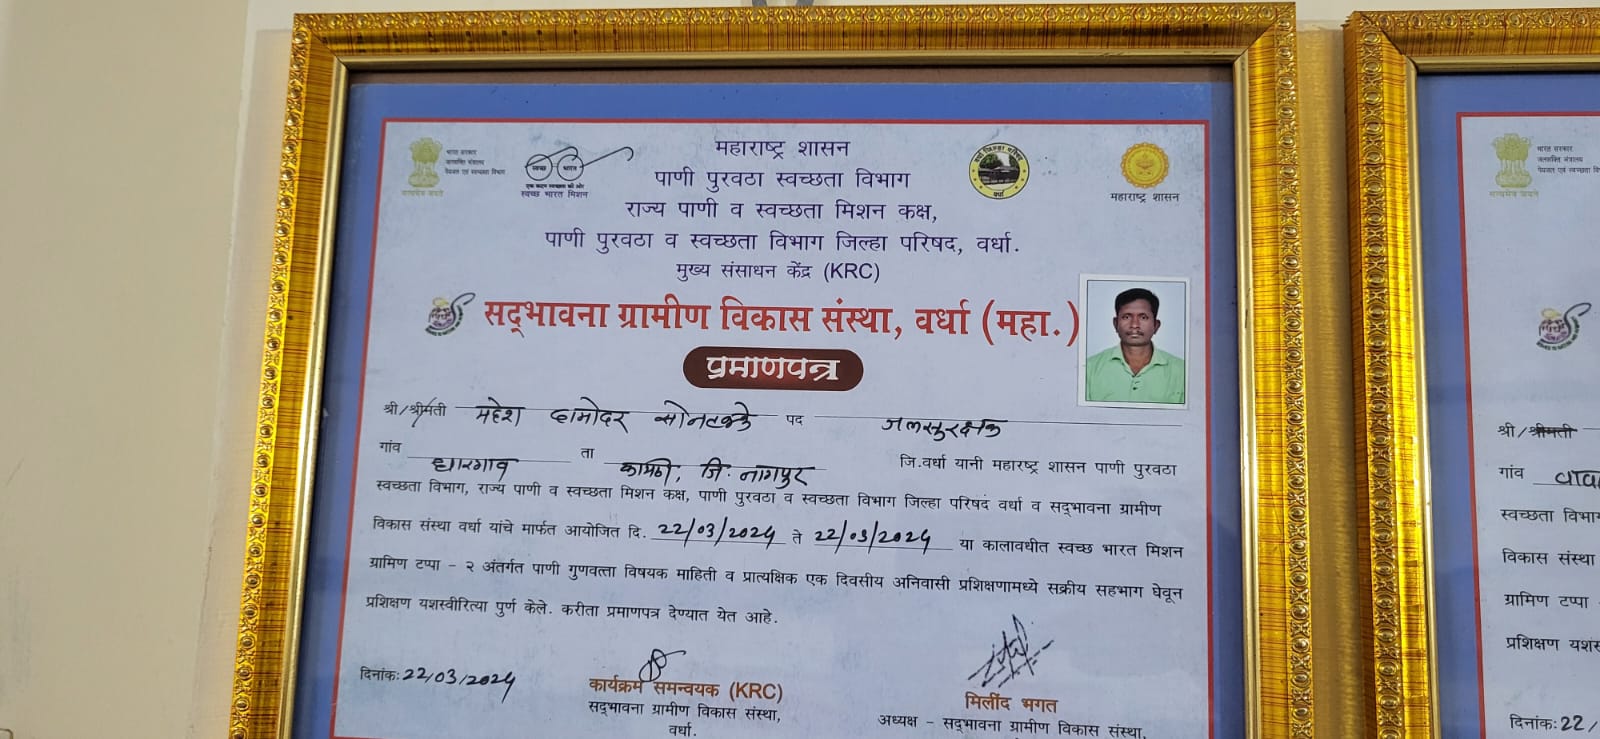 भारत सरकार
जलशक्ति मंत्रालय
पेयजल एवं स्वच्छता विभाग
सत्यमेव जयते
स्वच्छ भारत
एक कदम स्वच्छता की ओर
स्वच्छ भारत मिशन
महाराष्ट्र शासन
पाणी पुरवठा स्वच्छता विभाग
राज्य पाणी व स्वच्छता मिशन कक्ष,
पाणी पुरवठा व स्वच्छता विभाग जिल्हा परिषद, वर्धा.
मुख्य संसाधन केंद्र (KRC)
वर्धा जिल्हा परिषद
वर्धा
महाराष्ट्र शासन
सद्भावना ग्रामीण विकास संस्था, वर्धा (महा.)
प्रमाणपत्र
श्री/श्रीमती महेश दामोदर सोनटक्के पद जलसुरक्षक
गांव धारगाव ता कामठी, जि. नागपुर जि.वर्धा यानी महाराष्ट्र शासन पाणी पुरवठा
स्वच्छता विभाग, राज्य पाणी व स्वच्छता मिशन कक्ष, पाणी पुरवठा व स्वच्छता विभाग जिल्हा परिषदं वर्धा व सद्भावना ग्रामीण
विकास संस्था वर्धा यांचे मार्फत आयोजित दि. 22/03/2024 ते 22/03/2024 या कालावधीत स्वच्छ भारत मिशन
ग्रामिण टप्पा - २ अंतर्गत पाणी गुणवत्ता विषयक माहिती व प्रात्यक्षिक एक दिवसीय अनिवासी प्रशिक्षणामध्ये सक्रीय सहभाग घेवून
प्रशिक्षण यशस्वीरित्या पुर्ण केले. करीता प्रमाणपत्र देण्यात येत आहे.
दिनांक: 22/03/2024
कार्यक्रम समन्वयक (KRC)
सद्भावना ग्रामीण विकास संस्था,
वर्धा.
मिलींद भगत
अध्यक्ष - सद्भावना ग्रामीण विकास संस्था,
भारत सरकार
जलशक्ति मंत्रालय
सत्यमेव जयते
श्री/श्रीमती
गांव
स्वच्छता
विकास संस्था
ग्रामिण टप्पा
दिनांक: 22/